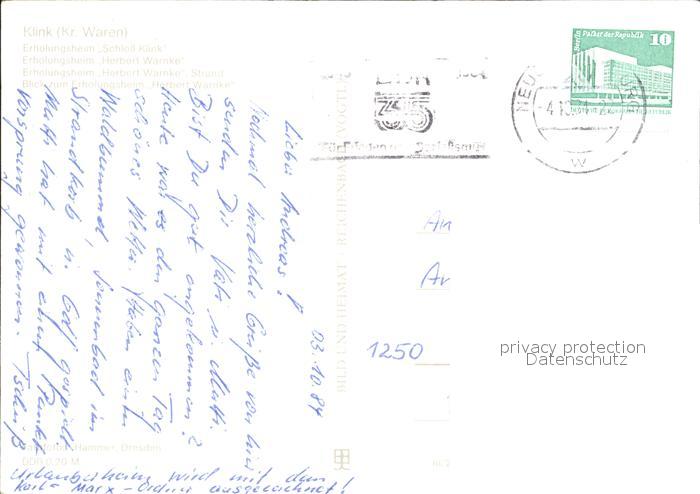 Klink (Kr. Waren)
Erholungsheim „Schloß Klink"
Erholungsheim „Herbert Warnke"
Erholungsheim „Herbert Warnke", Strand
Blick zum Erholungsheim „Herbert Warnke"
03.10.84
Lieber Andreas!
Nochmal herzliche Grüße von hier
senden Dir Vati u. Mutti.
Bist Du gut angekommen?
Heute war es den ganzen Tag
schönes Wetter. Haben einen
Waldbummel, Sonnenbad im
Strandkorb u. Golf gespielt
Mutti hat mit einem Punkt
Vorsprung gewonnen. Tschüß
Urlauberheim wird mit dem
Karl-Marx-Orden ausgezeichnet!
Hammer, Dresden
DDR 0,20 M
BILD UND HEIMAT REICHENBACH VOGTL
Berlin Palast der Republik
10
W
An
1250
privacy protection
Datenschutz